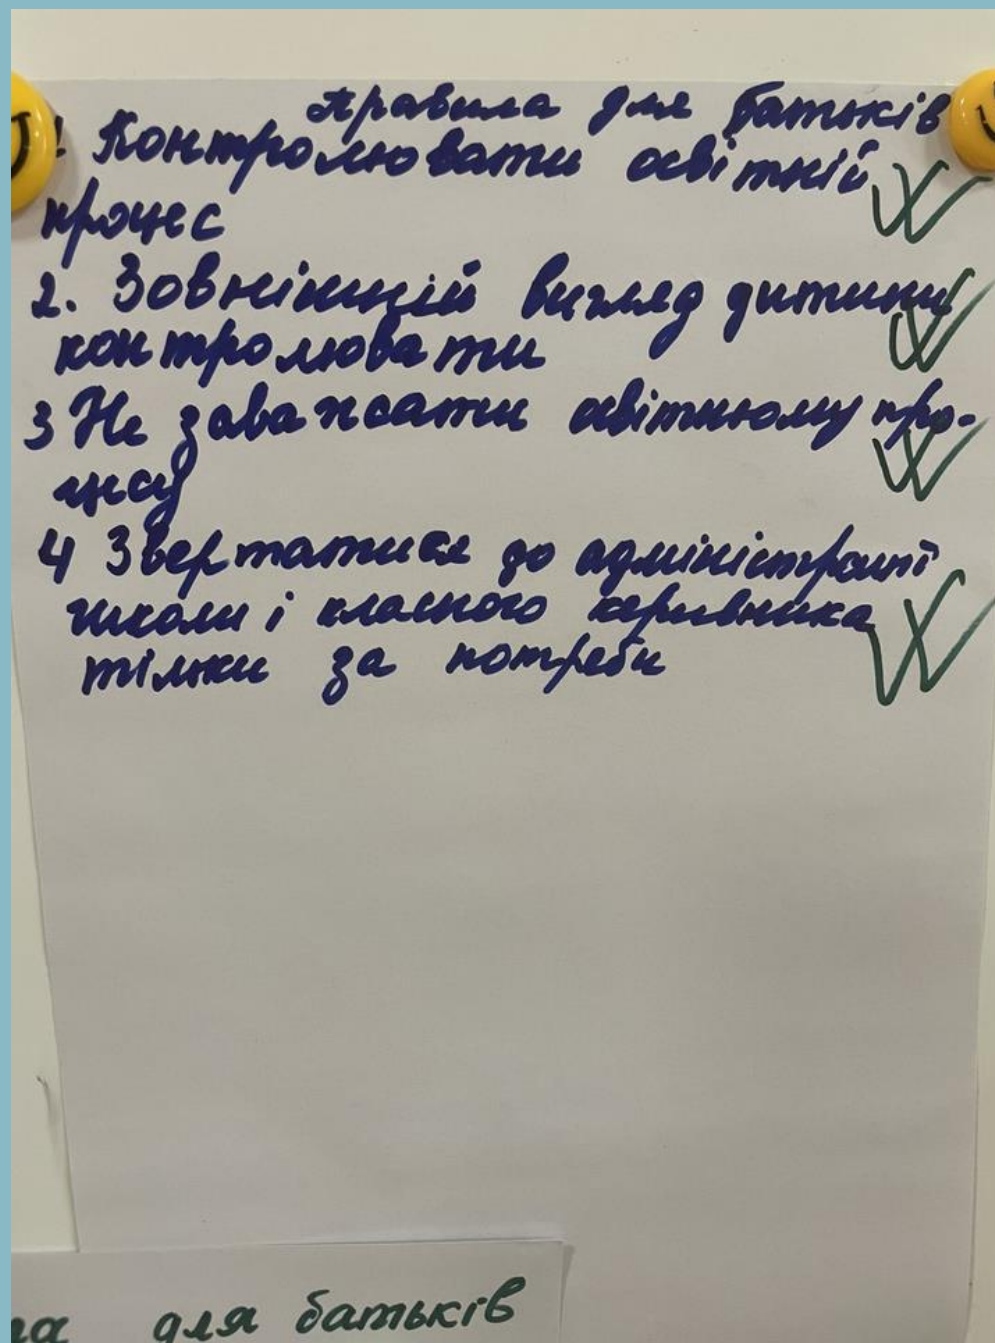 Правила для батьків
1 Контролювати освітній
процес
2. Зовнішній вигляд дитини
контролювати
3 Не заважати освітньому про-
цесу
4 Звертатися до адміністрації
школи і класного керівника
тільки за потреби
для батьків